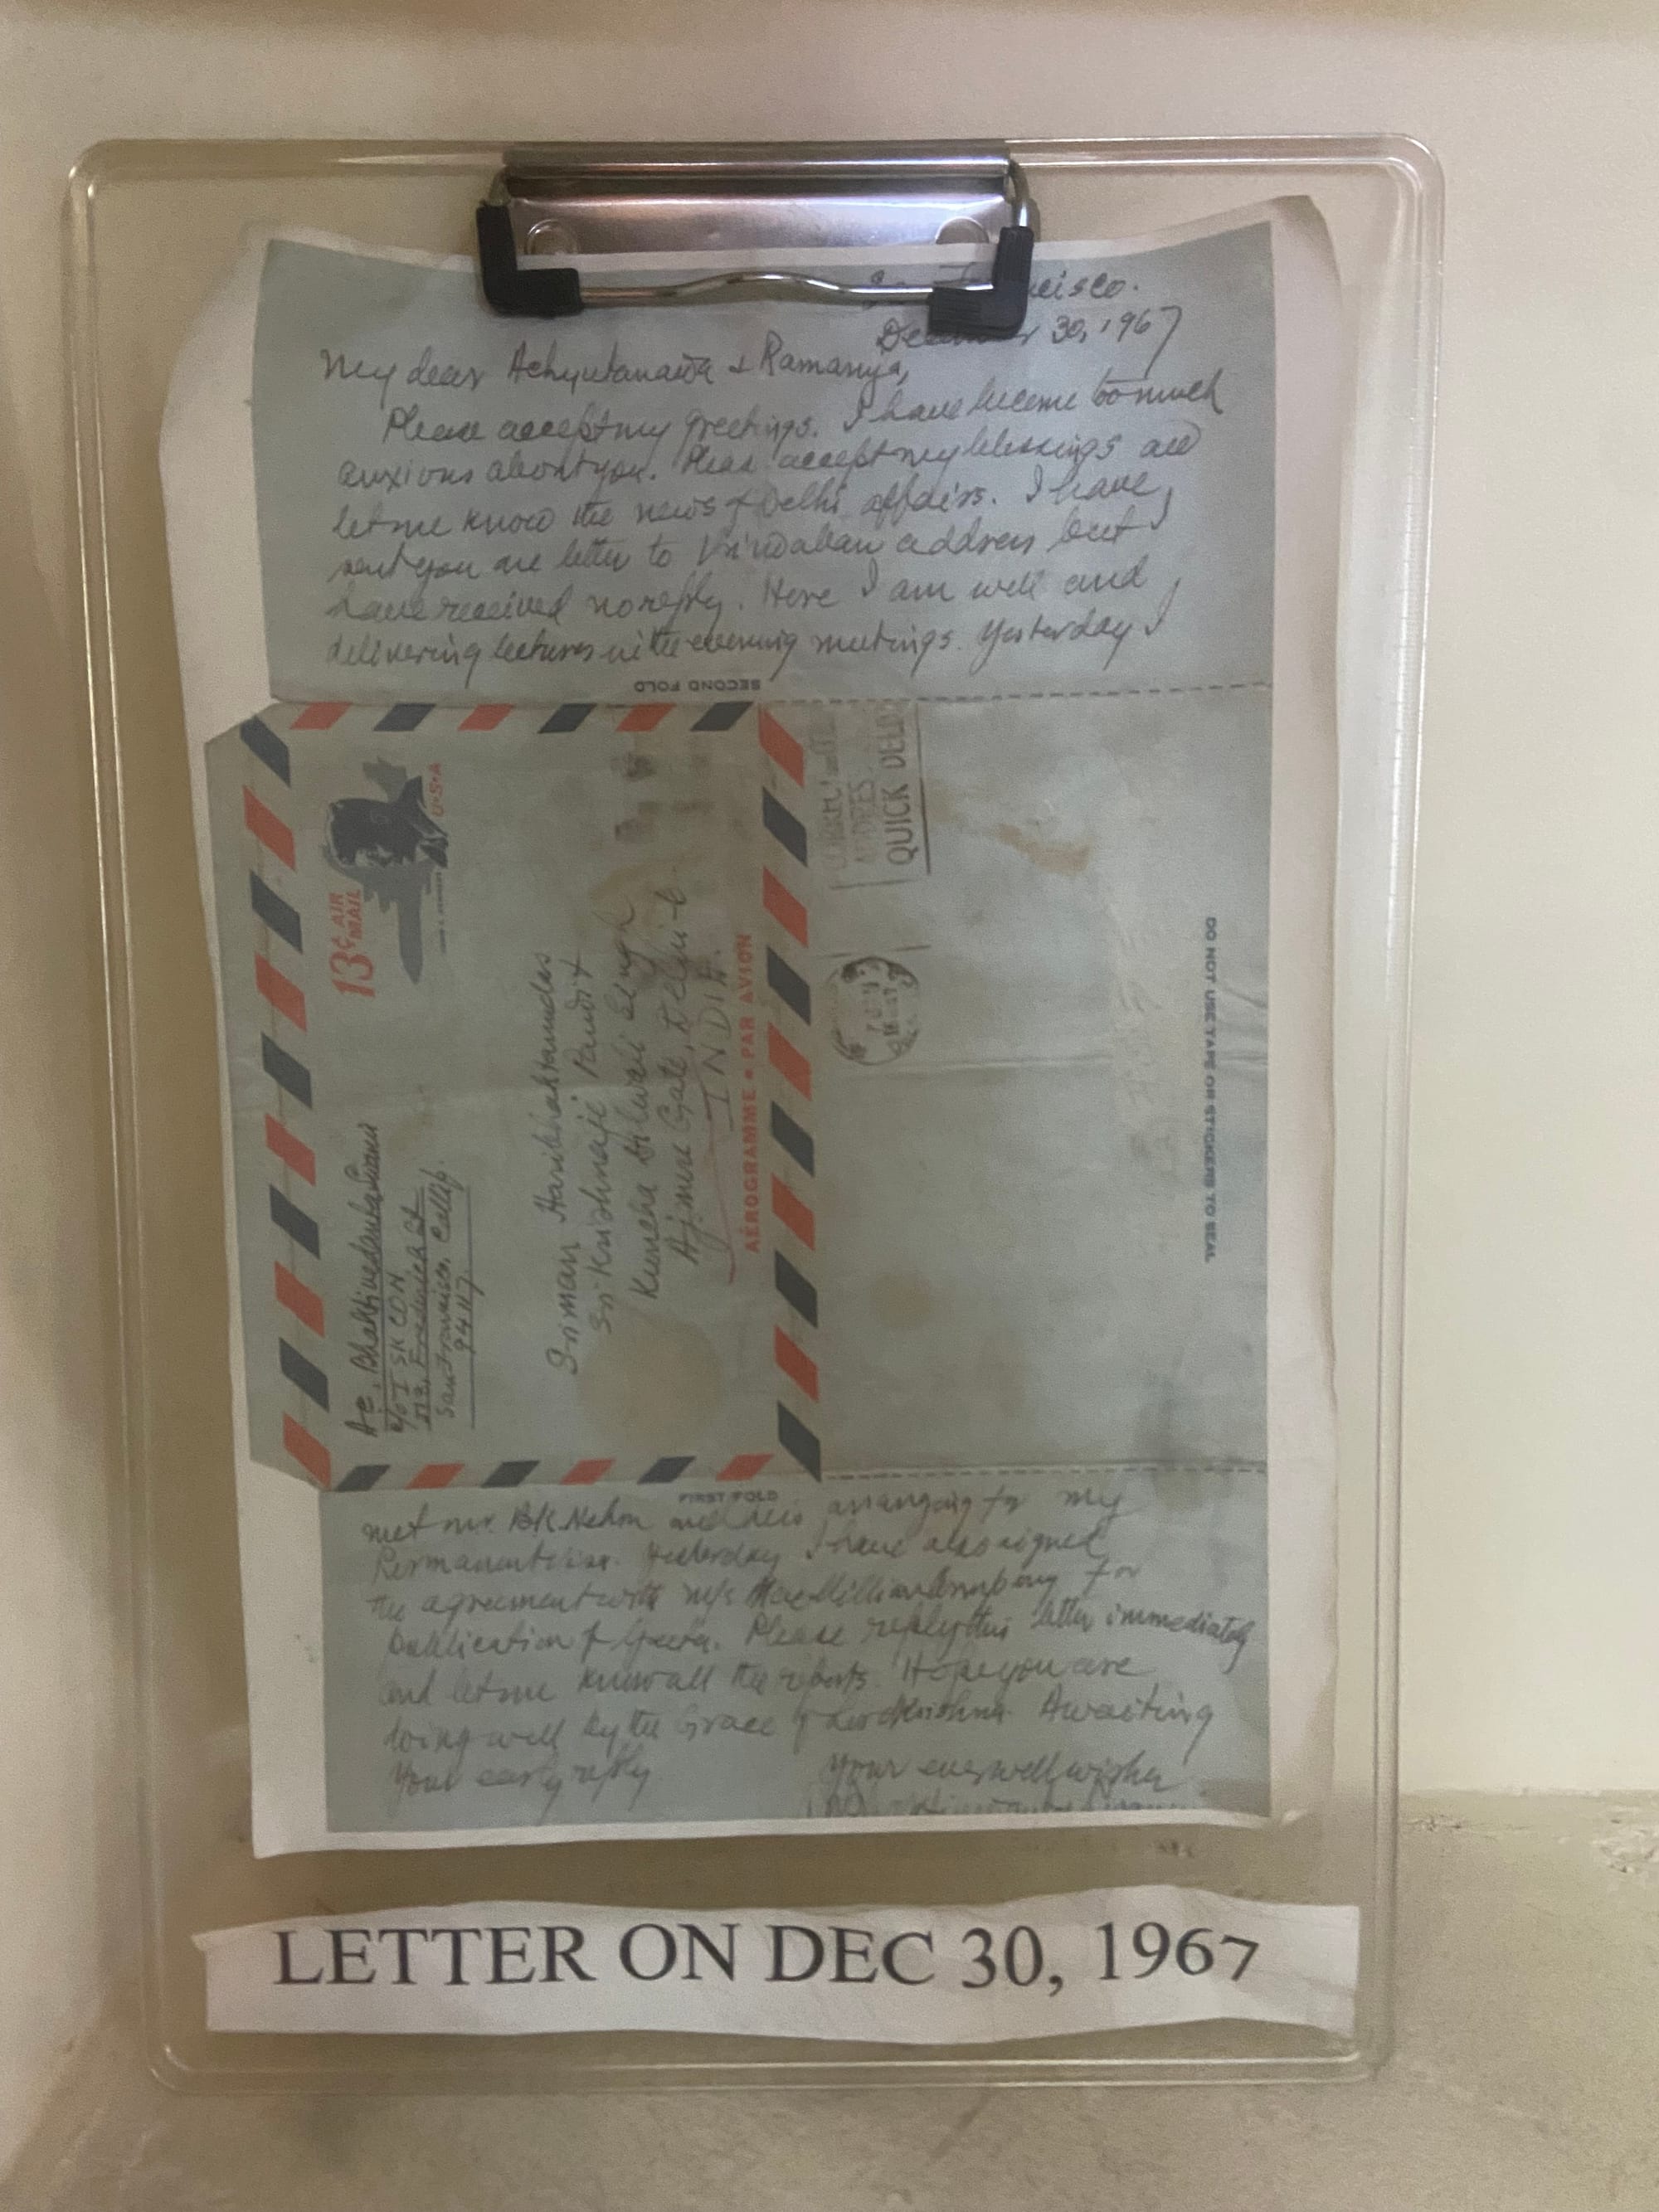 Francisco.
December 30, 1967
My dear Achyutananda & Ramanuja,
Please accept my greetings. I have become too much
anxious about you. Please accept my blessings and
let me know the news of Delhi affairs. I have
sent you one letter to Vrindaban address but
have received no reply. Here I am well and
delivering lectures in the evening meetings. Yesterday I
SECOND FOLD
13¢ AIR
MAIL
U·S·A
A.C. Bhaktivedanta Swami
c/o ISKCON
518, Frederick St
San Francisco. Calif.
94117
Sriman Haribhaktandas
Sri Krishnaji Pandit
Kuncha Dilwali Singh
Ajmere Gate, Delhi-6
INDIA.
AÉROGRAMME • PAR AVION
QUICK DELI
DO NOT USE TAPE OR STICKERS TO SEAL
FIRST FOLD
met mr. B.K. Nehru and he is arranging for my
Permanent visa. Yesterday I have also signed
the agreement with M/s MacMillian Company for
publication of Geeta. Please reply this letter immediately
and let me know all the reports. Hope you are
doing well by the Grace of Lord Krishna. Awaiting
your early reply.
your ever well wisher
LETTER ON DEC 30, 1967